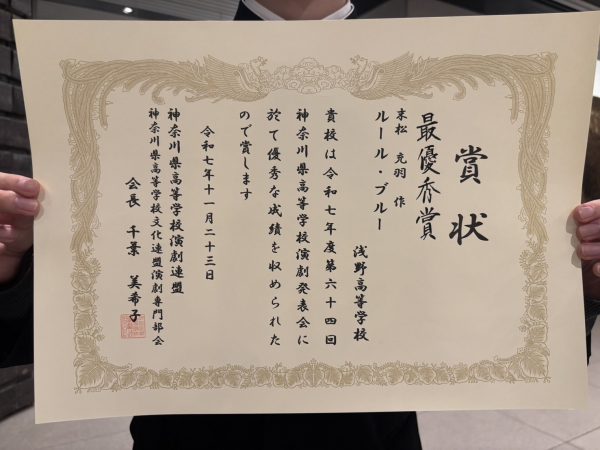 賞状
最優秀賞
末松 克羽 作
ルール・ブルー
浅野高等学校
貴校は令和七年度第六十四回
神奈川県高等学校演劇発表会に
於て優秀な成績を収められた
ので賞します
令和七年十一月二十三日
神奈川県高等学校演劇連盟
神奈川県高等学校文化連盟演劇専門部会
会長 千葉 美希子